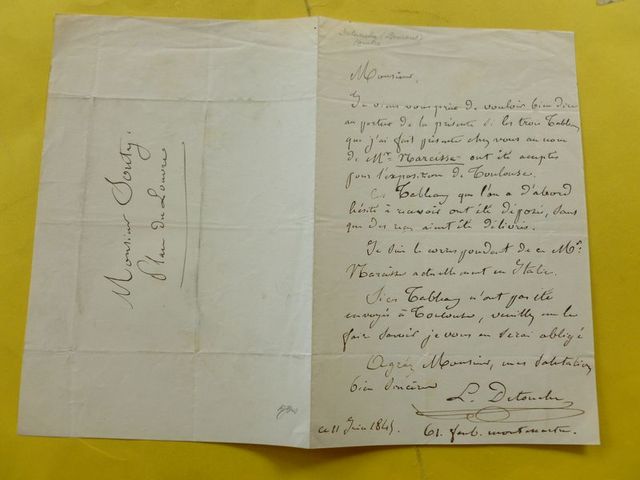 Monsieur Souty,
Place du Louvre
Monsieur,
Je viens vous prier de vouloir bien dire
au porteur de la présente si les trois Tableaux
que j'ai fait présenter chez vous au nom
de Mr. Narcisse ont été acceptés
pour l'exposition de Toulouse.
Ces Tableaux que l'on a d'abord
hésité à recevoir ont été déposés, sans
que des reçus aient été délivrés.
Je suis le correspondant de ce Mr.
Narcisse actuellement en Italie.
Si ces Tableaux n'ont pas été
envoyés à Toulouse, veuillez me le
faire savoir je vous en serai obligé
Agréez Monsieur, mes salutations
bien sincères
L. Detouche
ce 11 Juin 1845.
61. faub. montmartre.